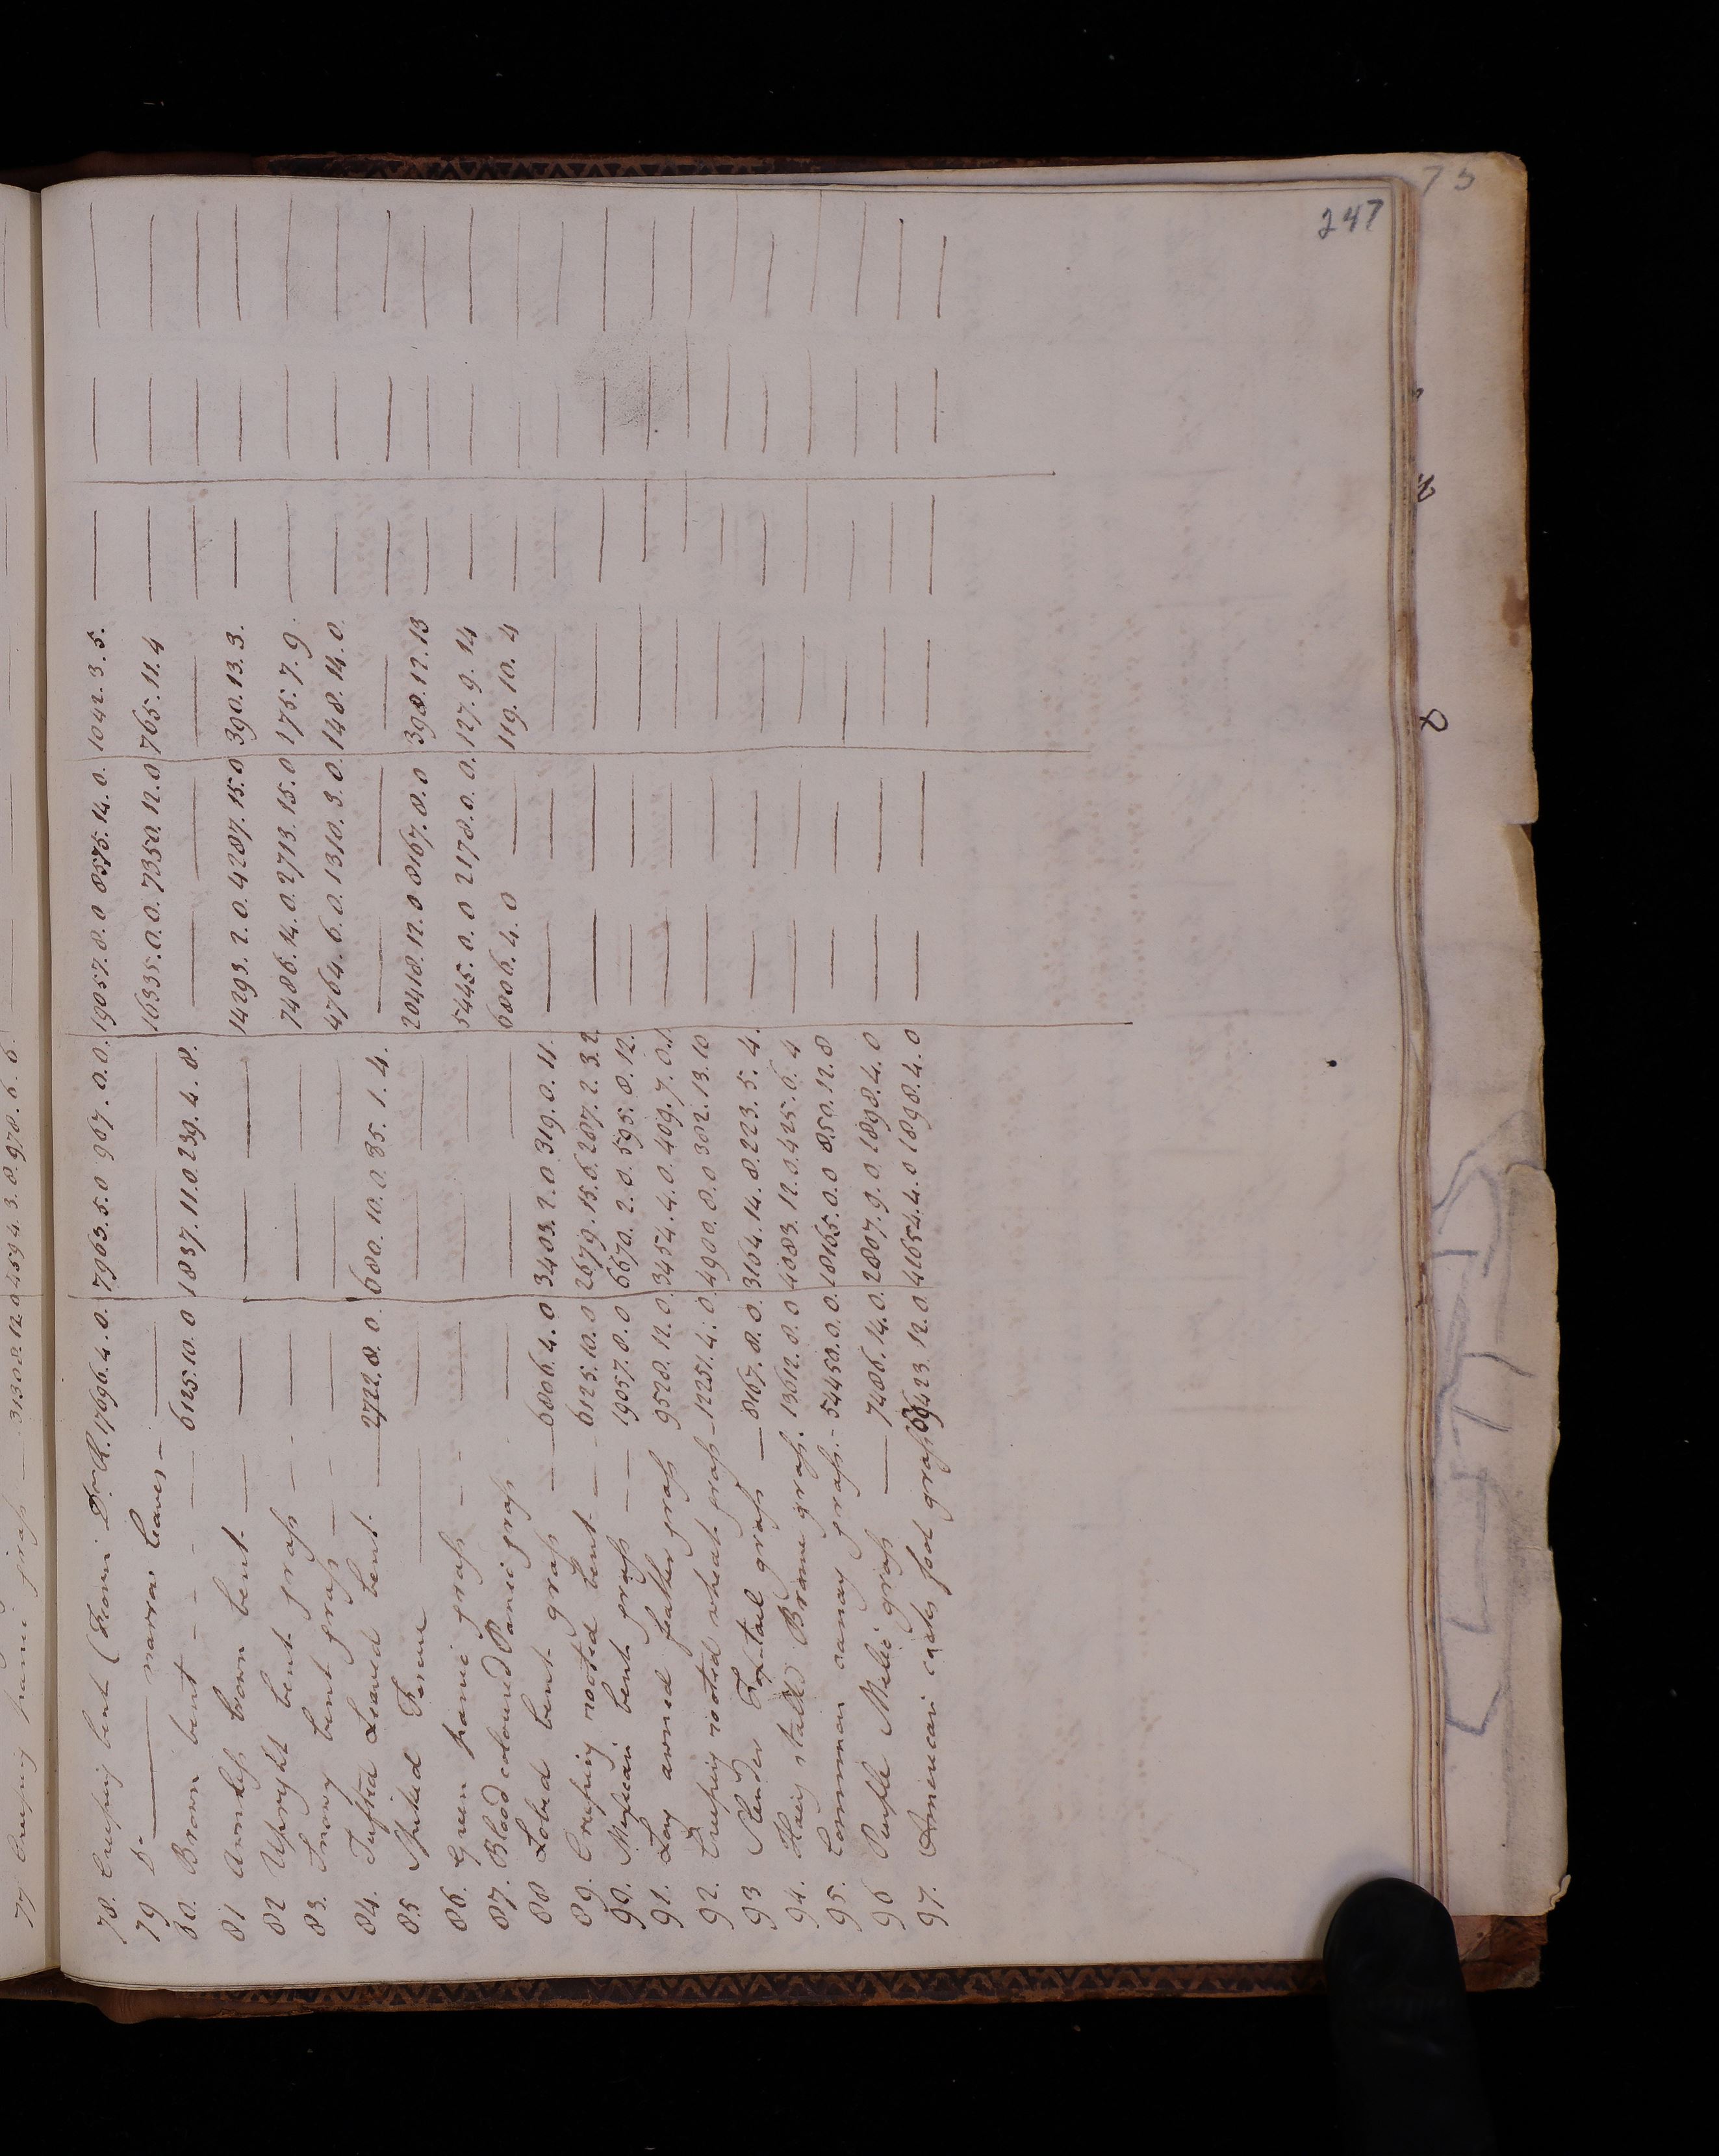 247
75
77 Creeping panic grass — 31308. 12. 0 4594. 3. 0. 978. 6. 6.
78. Creeping bent (Fiorin Dr R. 17696. 4. 0. 7963. 5. 0 967. 0. 0. 19057. 8. 0 8575. 14. 0. 1042. 3. 5.
79 Do —— narrow leaves — — — 16335. 0. 0. 7350. 12. 0 765. 11. 4
80. Brown bent - - - 6125. 10. 0 1837. 11. 0. 239. 4. 8.
81 Awnless brown bent — — — 14293. 2. 0. 4287. 15. 0 390. 13. 3.
82 Upright bent grass — — — 7486. 14. 0. 2713. 15. 0 175. 7. 9.
83. Snowy bent grass — — — 4764. 6. 0. 1310. 3. 0. 148. 14. 0.
84. Tufted Leaved bent. — 2722. 8. 0. 680. 10. 0. 35. 1. 4.
85 Spiked Fescue — — — 20418. 12. 0 8167. 8. 0 398. 12. 13
86. Green panic grass — — — 5445. 0. 0 2178. 0. 0. 127. 9. 14
87. Blood coloured Panic grass - — — 6806. 4. 0 — 119. 10. 4
88 Lobed bent grass — 6806. 4. 0 3403. 2. 0 319. 0. 11.
89. Creeping rooted bent - — 6125. 10. 0 2679. 15. 6. 287. 2. 3. 2
90. Mexican bent grass — — 19057. 8. 0 6670. 2. 0. 595. 8. 12.
91. Long awned feather grass 9528. 12. 0. 3454. 4. 0. 409. 7. 0.
92. Creeping rooted wheat grass - 12251. 4. 0. 4900. 8. 0 382. 13. 10
93 Slender Foxtail grass — 8167. 8. 0. 3164. 14. 8. 223. 5. 4.
94. Hairy stalked Brome grass. 13612. 8. 0 4083. 12. 0. 425. 6. 4
95. Common canary grass. - 54450. 0. 0. 18165. 0. 0 850. 12. 8
96 Purple Melic grass — 7486. 14. 0. 2807. 9. 0. 1898. 4. 0
97. American cocks foot grass 69423. 12. 0. 41654. 4. 0 1898. 4. 0